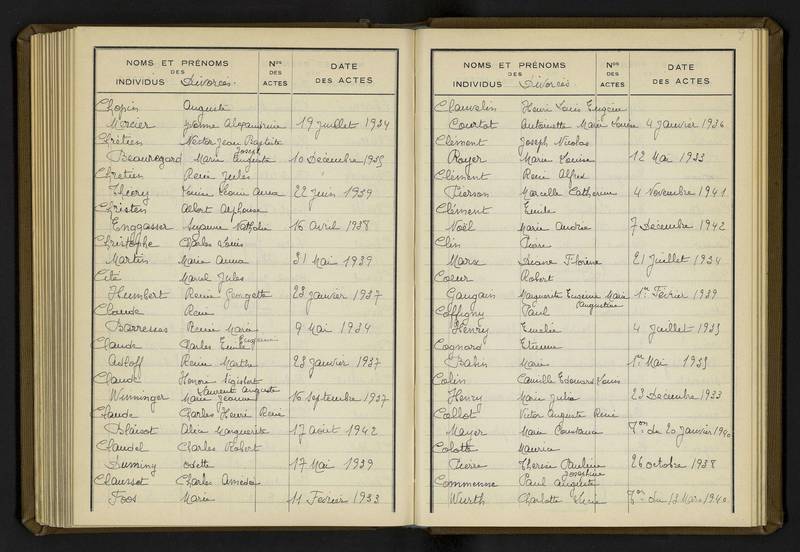 NOMS ET PRÉNOMS DES INDIVIDUS Divorcés. Nos DES ACTES DATE DES ACTES
Chopin Auguste
Mercier Yvonne Alexandrine 19 juillet 1934
Chrétien Nestor Jean Baptiste
Beauregard Marie Joseph Eugenie 10 Décembre 1935
Chretien René Jules
Thiery Louise Léonie 22 juin 1939
Christen Albert Alphonse
Enggasser Suzanne Nathalie 16 Avril 1938
Christophe Charles Louis
Martin Marie Anna 31 Mai 1939
Cité Marcel Jules
Humbert Renée Georgette 28 janvier 1937
Claude René
Marie 9 Mai 1934
Claude Charles Emile Eugène
Adloff Renée Marthe 28 janvier 1937
Claude Honoré Sigisbert
Laurent Auguste
Winninger Marie Jeanne 16 septembre 1937
Claude Charles Henri René
Alice Marguerite 17 août 1942
Claudel Charles Robert
Duminy Odette 17 Mai 1939
Claussot Charles Amédée
Foos Marie 11 Fevrier 1933
7
NOMS ET PRÉNOMS DES INDIVIDUS Divorcés. Nos DES ACTES DATE DES ACTES
Clauvelin Henri Louis Eugène
Courtot Antoinette Marie Louise 4 janvier 1936
Clément Joseph Nicolas
Royer Marie Louise 12 Mai 1933
Clément René Alfred
Pierson Marcelle Catherine 4 Novembre 1941
Clément Emile
Noël Marie Andrée 7 Décembre 1942
Clin Pierre
Marx Diane Florine 21 juillet 1934
Coeur Robert
Gaugain Marguerite Eugenie Marie 1er Fevrier 1939
Coffigny Paul Augustine
Henry Emelie 4 juillet 1935
Cognard Etienne
Marie 1er Mai 1935
Colin Camille Edouard Louis
Henry Marie Julia 23 Decembre 1933
Collot Victor Auguste René
Mayer Marie Constance Ton du 20 janvier 1940
Colotte Maurice
Pierre Thérèse Pauline 26 octobre 1938
Commenne Paul Auguste Joséphine
Wurth Charlotte Lucie Ton du 13 Mars 1940